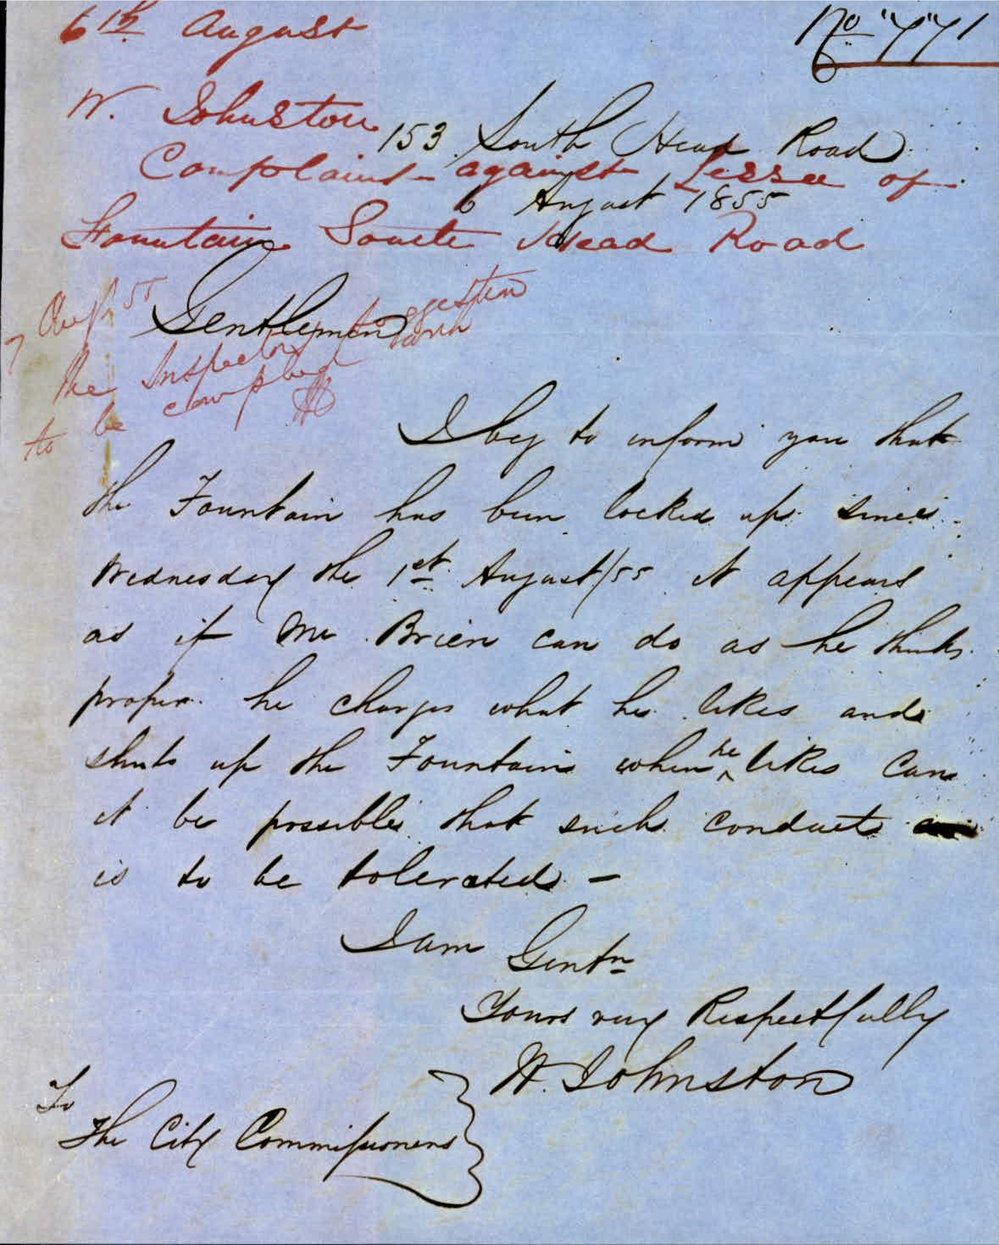 6th August
No "771
W. Johnston
153 South Head Road
Complaint against Lessee of
6 August 1855
Fountain South Head Road
7 Aug 55
Gentlemen
the Inspectors suggestion
to be complied with
I beg to inform you that
the Fountain has been locked up since
Wednesday the 1st August/55 it appears
as if Mr Brien can do as he thinks
proper he charges what he likes and
shuts up the Fountain when he likes Can
it be possible that such conduct
is to be tolerated —
I am Gentn
Yours very Respectfully
W. Johnston
To
The City Commissioners